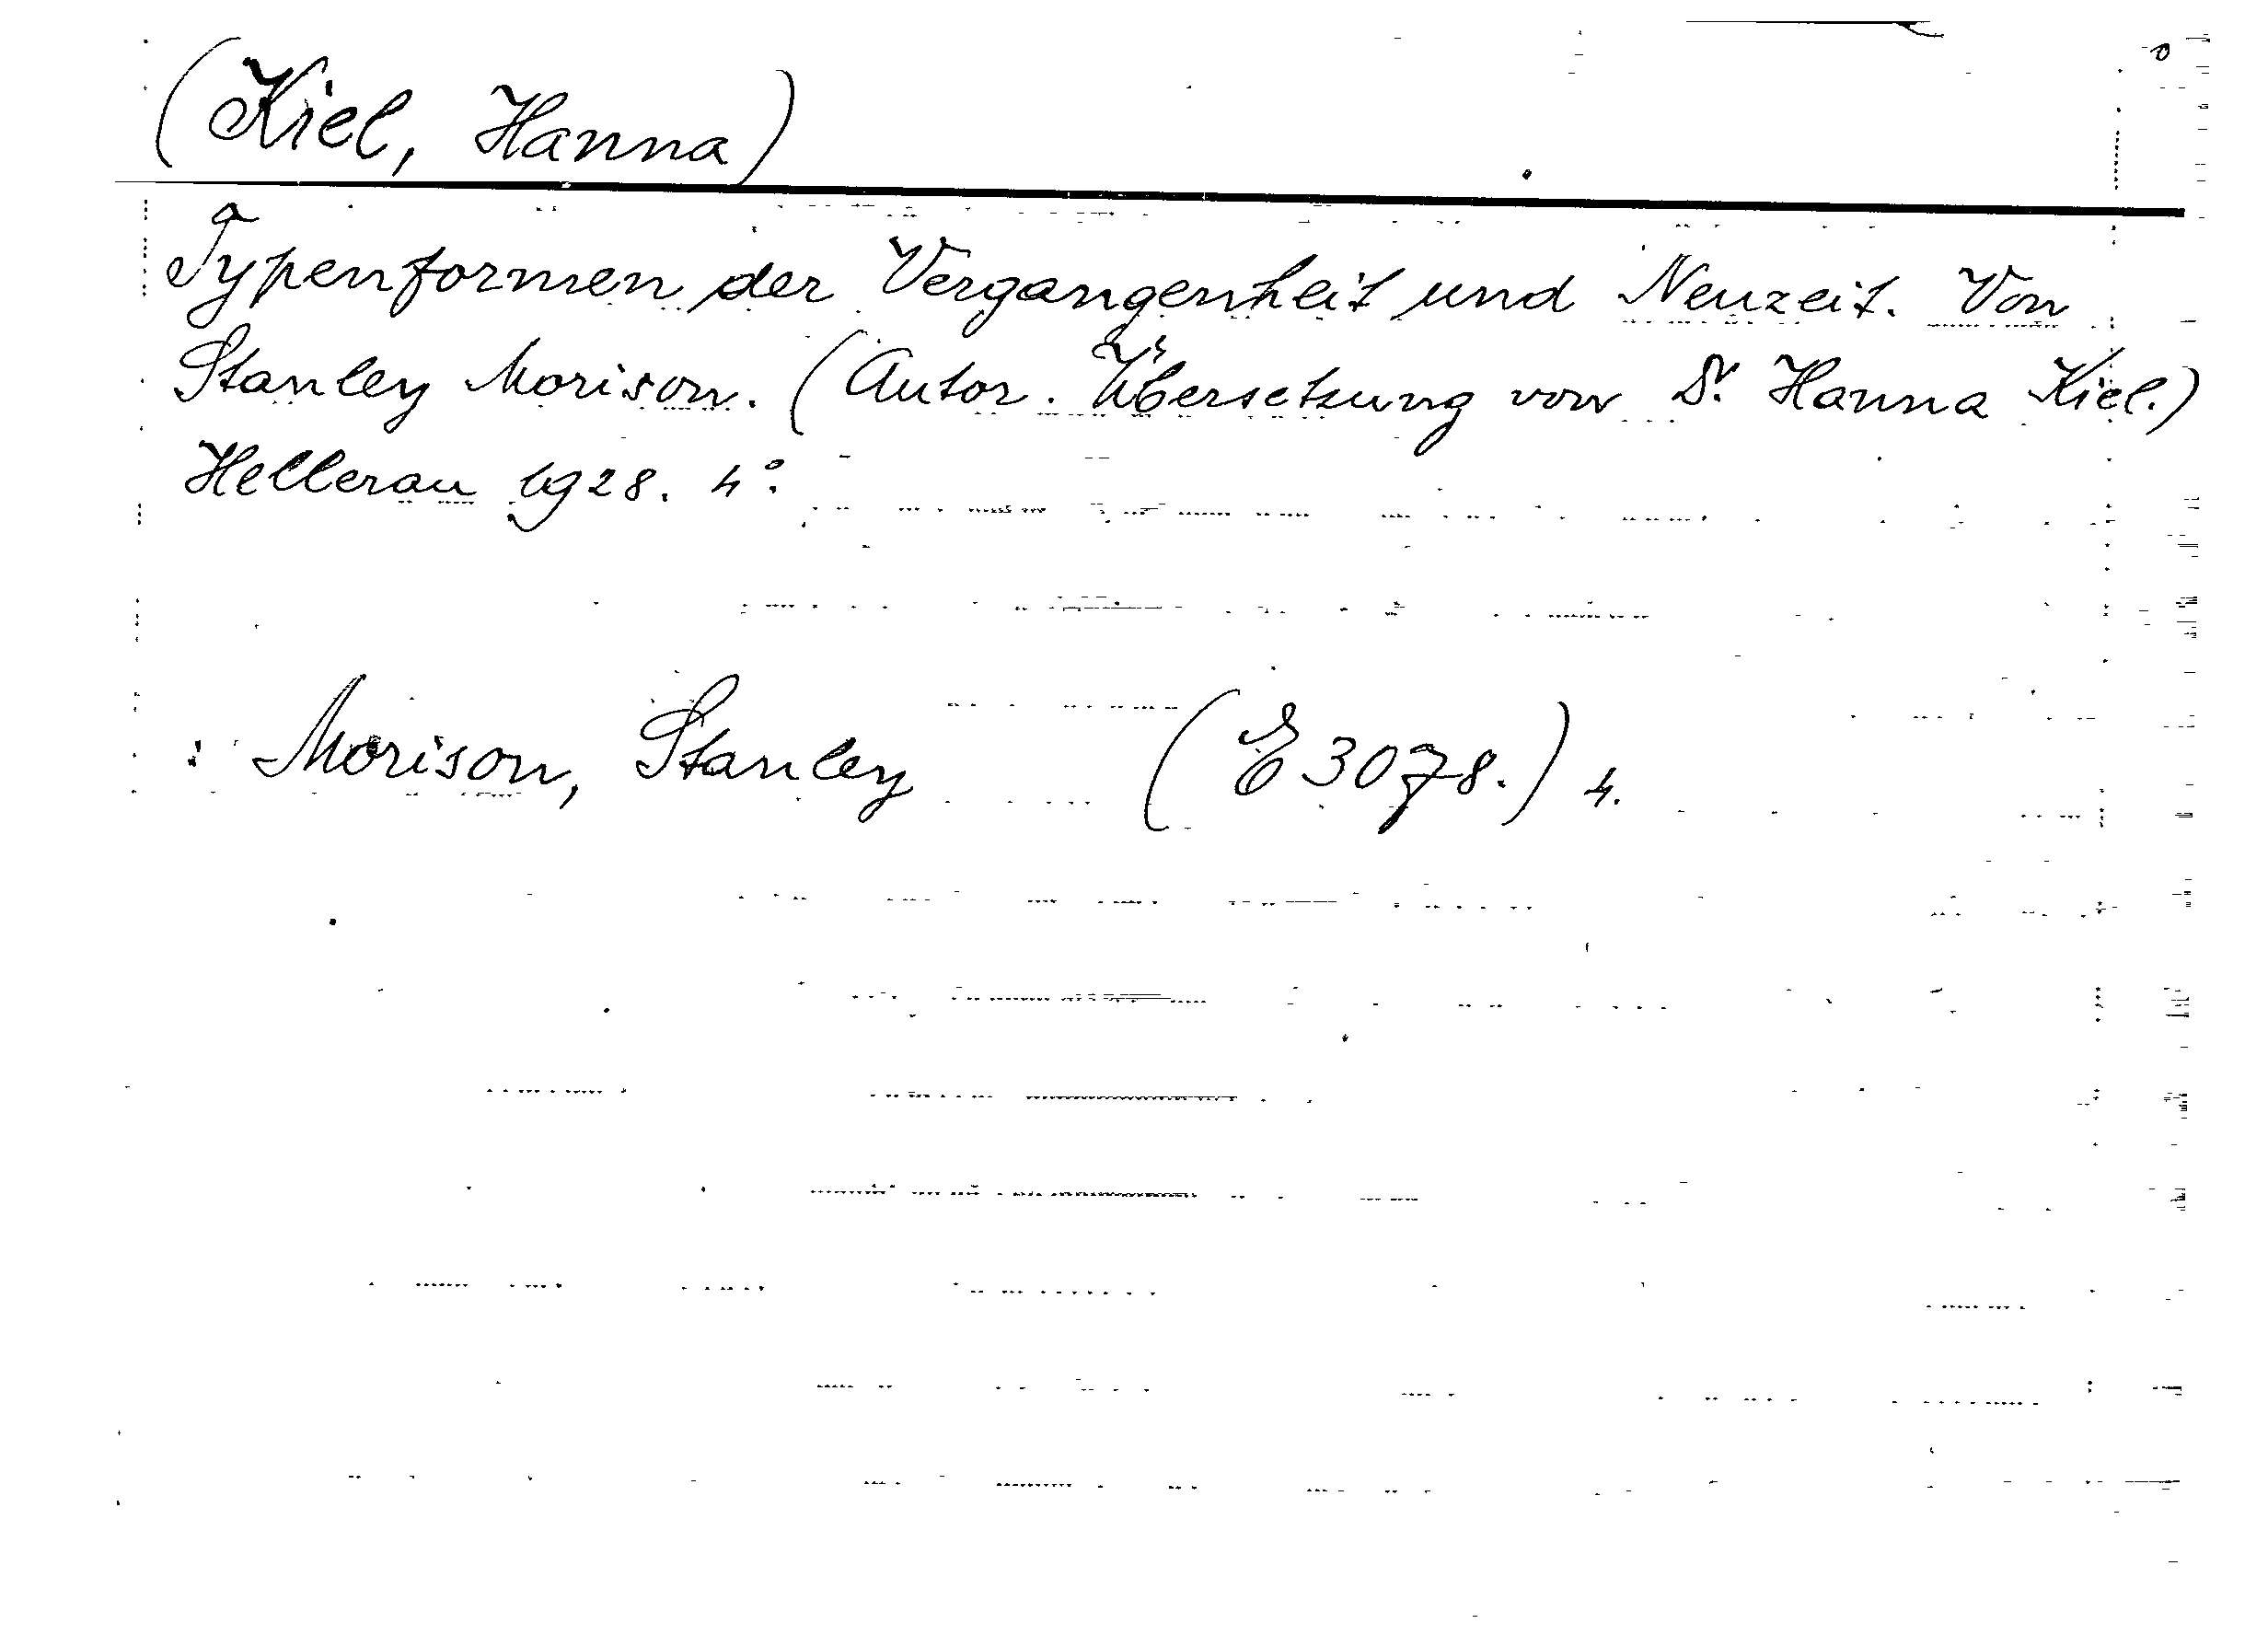 (Kiel, Hanna)
Typenformen der Vergangenheit und Neuzeit. Von
Stanley Morison. (Autor. Übersetzung von Dr. Hanna Kiel.)
Hellerau 1928. 4°.
: Morison, Stanley (E 3078.) 4.